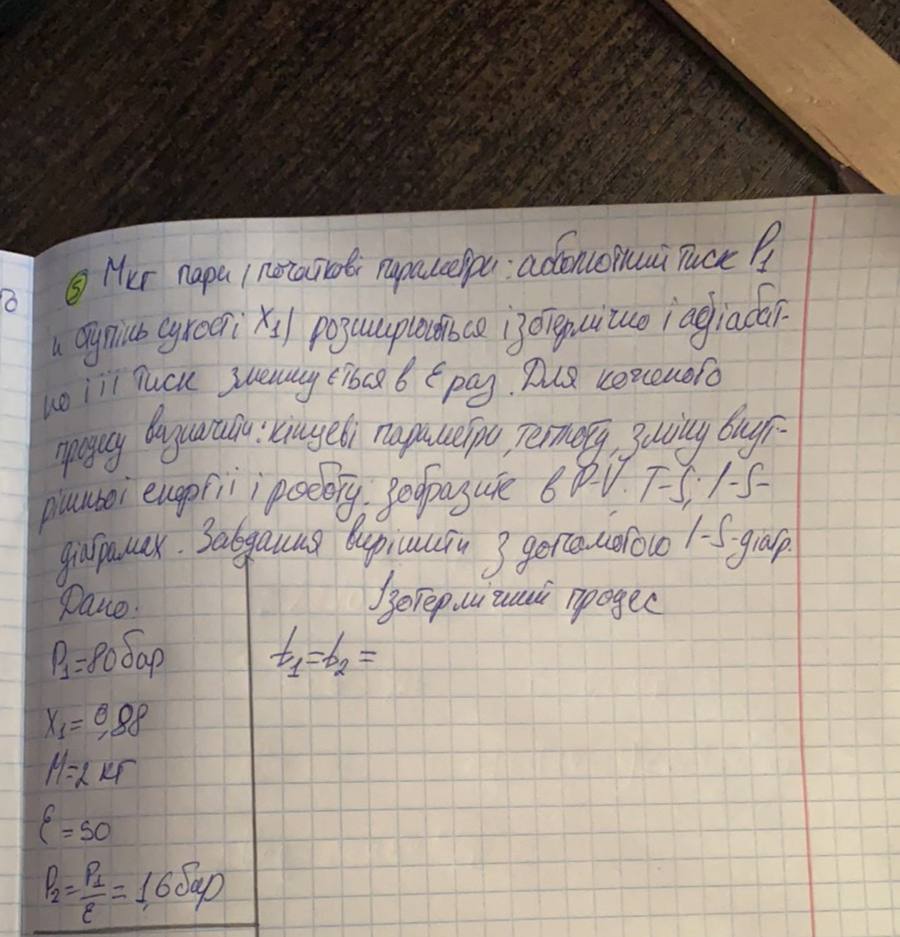 5 M кг пари (початкові параметри: абсолютний тиск P1
и ступінь сухості X1) розширюється ізотермічно і адіабат-
но і її тиск зменшується в ε раз. Для кожного
процесу визначити: кінцеві параметри, теплоту, зміну внут-
рішньої енергії і роботу; зобразити в P-V; T-S; I-S-
діаграмах. Завдання вирішити з допомогою I-S-діагр.
Дано: Ізотермічний процес
P1=80 бар t1=t2=
X1=0,88
M=2 кг
ε=50
P2=P1/ε=1,6 бар